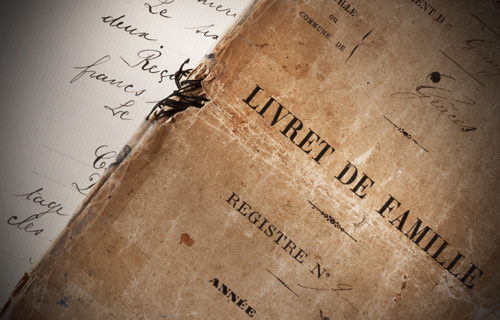 Le
deux
Reçu
francs
Le
tage
cles
VILLE
OU
COMMUNE DE
LIVRET DE FAMILLE
REGISTRE N°
ANNÉE